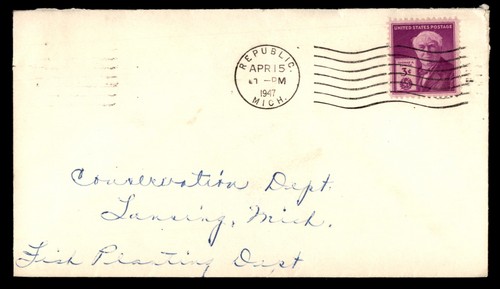 UNITED STATES POSTAGE
3¢
REPUBLIC
APR 15
PM
1947
MICH.
Conservation Dept.
Lansing, Mich.
Fish Planting Dept